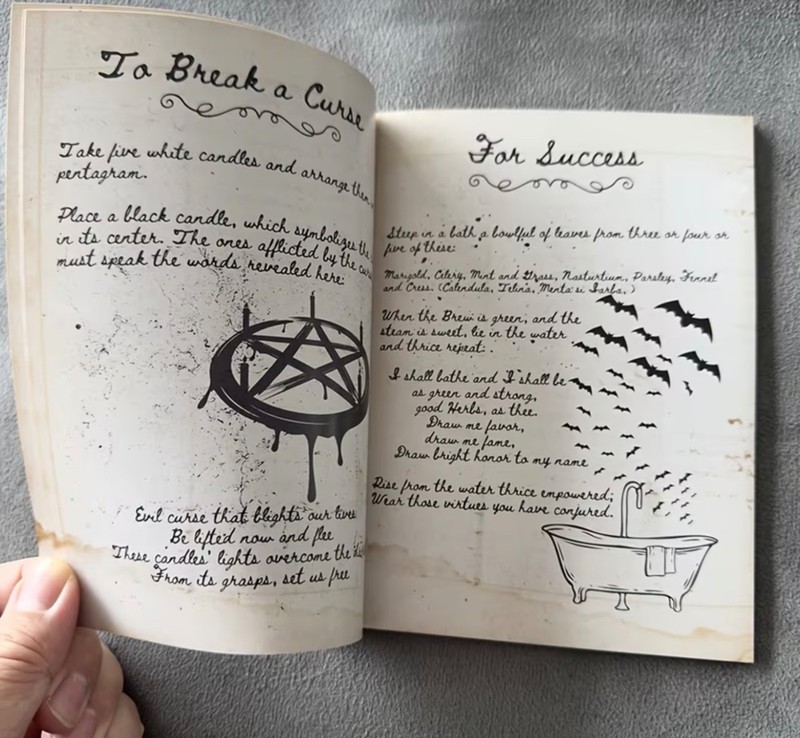 To Break a Curse
Take five white candles and arrange them
pentagram.
Place a black candle, which symbolizes the
in its center. The ones afflicted by the
must speak the words revealed here:
Evil curse that blights our lives
Be lifted now and flee
These candles' lights overcome the
From its grasps, set us free
For Success
Steep in a bath a bowlful of leaves from three or four or
five of these:
Marigold, Celery, Mint and Grass, Nasturtium, Parsley, Fennel
and Cress. (Calendula, Telina, Menta si Iarba, )
When the Brew is green, and the
steam is sweet, lie in the water
and thrice repeat: .
I shall bathe and I shall be
as green and strong,
good Herbs, as thee.
Draw me favor,
draw me fame,
Draw bright honor to my name
Rise from the water thrice empowered;
Wear those virtues you have conjured.